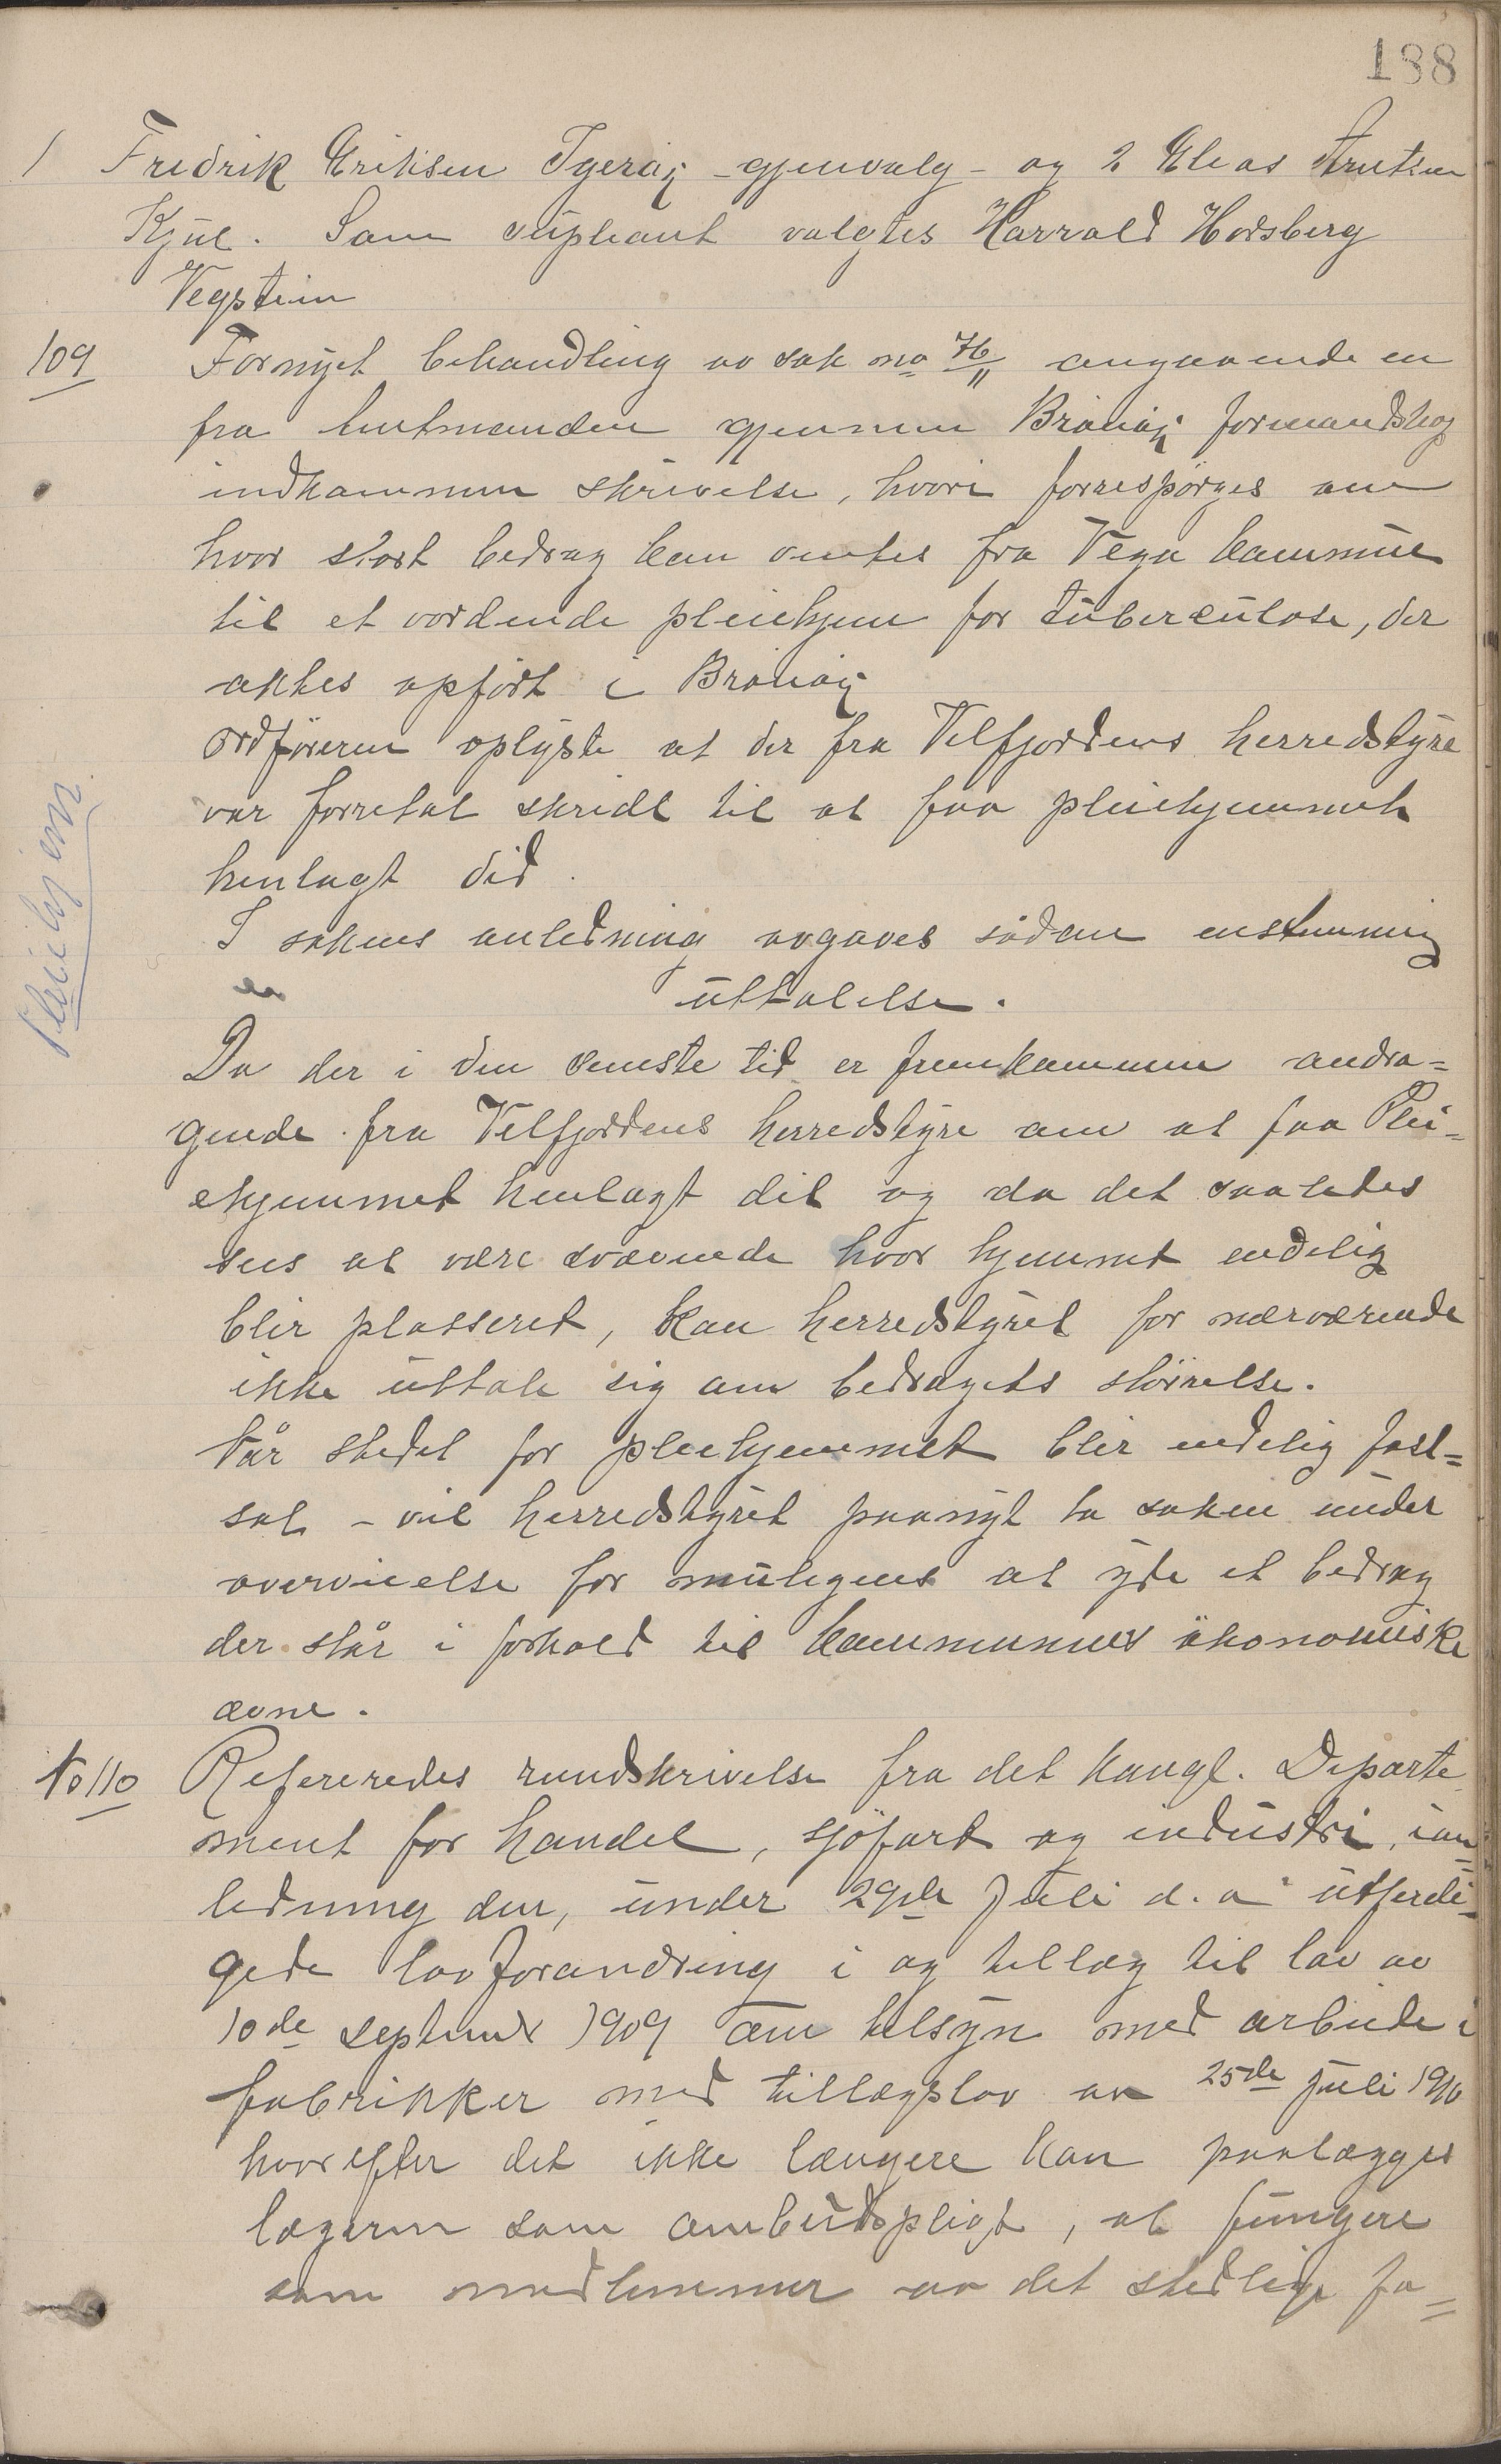 188
1 Fredrik Eriksen Igerøy - gjenvalg - og 2 Elias Knutsen
Kjul. Som supleant valgtes Harrald Hodsberg
Vegstein
109 Fornyet behandling av sak no 76/11 angaaende en
fra amtmanden gjennem Brønøy formandskap
indkommen skrivelse, hvori forrespørges om
hvor stort bedrag kan ventes fra Vega kommune
til et vordende pleiehjem for tuberculose, der
aktes opført i Brønøy
Ordføreren oplyste at der fra Velfjordens herredstyre
var forretat skridt til at faa pleiehjemmet
henlagt did.
I sakens anledning avgaves sådan enstemmig
uttalelse.
Da der i den seneste tid er fremkommen andra=
gende fra Velfjordens herredstyre om at faa Plei=
ehjemmet henlagt dit og da det saaledes
sees at være svævende hvor hjemmet endelig
blir plasseret, kan herredstyret for nærværende
ikke uttale sig om bedragets størrelse.
Når stedet for pleiehjemmet blir endelig fast=
sat - vil herredstyret paanyt ta saken under
overveielse for muligens at yde et bedrag
der står i forhold til kommunens økonomiske
ævne.
No 110 Refereredes rundskrivelse fra det kongl. Departe
ment for handel, sjøfart og industri, ian=
ledning den, under 29de Juli d.a. utferdi=
gede lovforandring i og tillæg til lov av
10de september 1909 om tilsyn med arbeide i
fabrikker med tillægslov av 25de juli 1910
hvorefter det ikke længere kan paalægges
lægerne som ombudspligt, at fungere
som medlemmer av det stedlige fa=
Pleiehjem